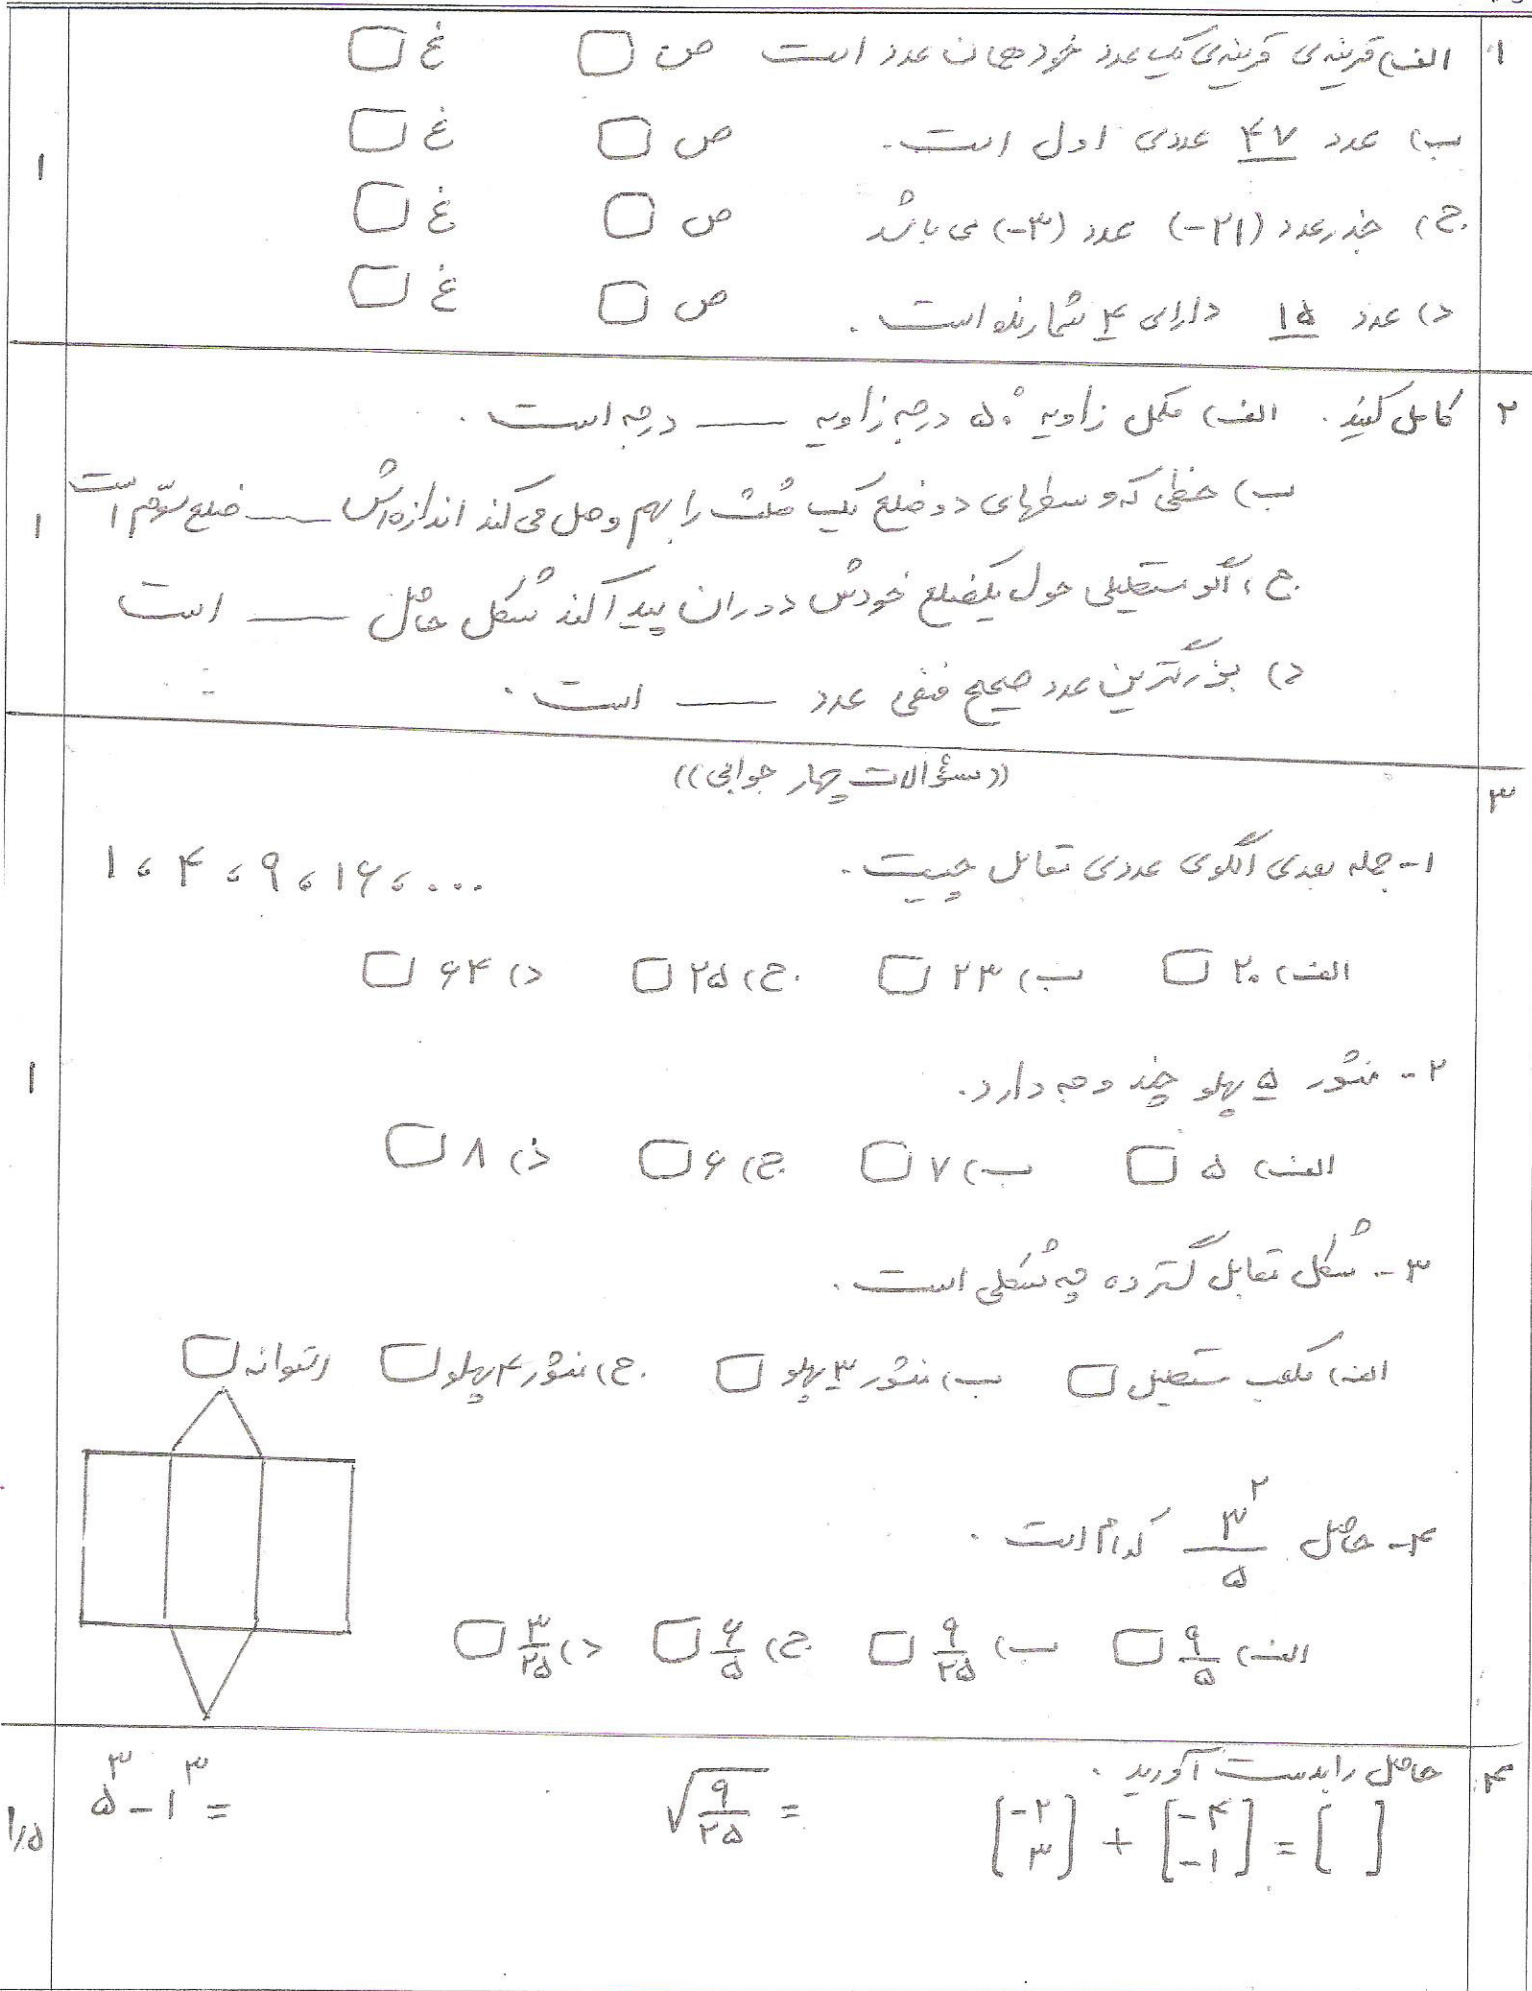 ۱ الف) قرینه‌ی قرینه‌ی یک عدد خود همان عدد است ص □ غ □
ب) عدد ۴۷ عددی اول است. ص □ غ □
ج) جذر عدد (۲۱-) عدد (۳-) می باشد ص □ غ □
د) عدد ۱۵ دارای ۴ شمارنده است. ص □ غ □
۱
۲ کامل کنید. الف) مکمل زاویه ۵۰° درجه زاویه ــــ درجه است.
ب) خطی که وسطهای دو ضلع یک مثلث را بهم وصل می کند اندازه اش ــــ ضلع سوّم است
ج) اگر مستطیلی حول یکضلع خودش دوران پیدا کند شکل حاصل ــــ است
د) بزرگترین عدد صحیح منفی عدد ــــ است.
۱
۳ ((سؤالات چهار جوابی))
۱- جمله بعدی الگوی عددی مقابل چیست. ۱ ، ۴ ، ۹ ، ۱۶ ، ...
الف) ۲۰ □ ب) ۲۳ □ ج) ۲۵ □ د) ۶۴ □
۲- منشور ۵ پهلو چند وجه دارد.
الف) ۵ □ ب) ۷ □ ج) ۶ □ د) ۸ □
۱
۳- شکل مقابل گسترده چه شکلی است.
الف) مکعب مستطیل □ ب) منشور ۳ پهلو □ ج) منشور ۴ پهلو □ استوانه □
۴- حاصل ۳²/۵ کدام است.
الف) ۹/۵ □ ب) ۹/۲۵ □ ج) ۶/۵ □ د) ۳/۲۵ □
۴ حاصل را بدست آورید.
[-۲ ۳] + [-۴ -۱] = [ ] √(۹/۲۵) = ۵³ - ۱³ =
۱/۵